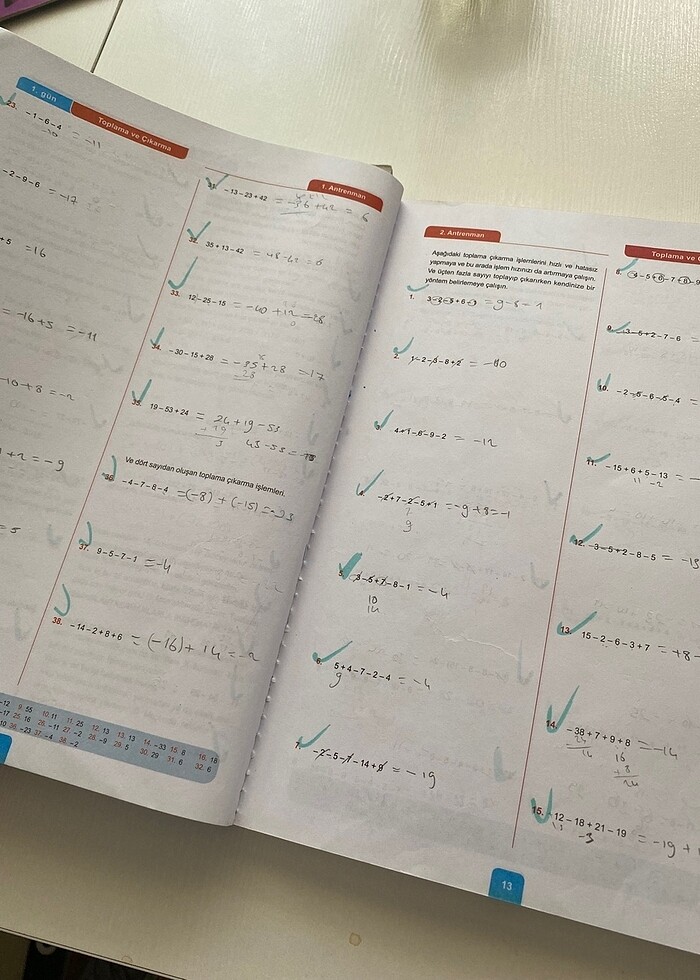 1. gün
Toplama ve Çıkarma
23. -1-6-4 = -11
-10
-2-9-6 = -17
+5 = 16
= -16+5 = -11
-10+8 = -2
+2 = -9
= 5
1. Antrenman
31. -13-23+42 = -36+42 = 6
32. 35+13-42 = 48-42 = 6
33. 12-25-15 = -40+12 = 28
34. -30-15+28 = +28 = 17
28
35. 19-53+24 = 24+19-53
+19
43-53 =
Ve dört sayıdan oluşan toplama çıkarma işlemleri.
36. -4-7-8-4 = (-8) + (-15) =
37. 9-5-7-1 = -4
38. -14-2+8+6 = (-16)+14 = -2
-12 9. 55 10. 11 11. 25 12. 13 13. 13 14. -33 15. 8 16. 18
-17 25. 16 26. -11 27. -2 28. -9 29. 5 30. 29 31. 6 32. 6
36. -23 37. -4 38. -2
2. Antrenman
Aşağıdaki toplama çıkarma işlemlerini hızlı ve hatasız
yapmaya ve bu arada işlem hızınızı da artırmaya çalışın.
Ve üçten fazla sayıyı toplayıp çıkarırken kendinize bir
yöntem belirlemeye çalışın.
1. = 9-8-1
2. = -10
3. 4+1-6-9-2 = -12
4. -2+7-2-5+1 = -9+8=-1
7
9
5. -3-5+7-8-1 = -4
10
14
6. 5+4-7-2-4 = -4
9
7. -14+9 = -19
13
Toplama ve
8.
9. -13-5+2-7-6 =
10. -2-5-6-5-4 =
11. -15+6+5-13 = -
11 -2
12. -3-5+2-8-5 = -19
13. 15-2-6-3+7 = +8-
14. -38+7+9+8 = -14
24 16
14 +8
24
15. -12-18+21-19 = -19+
-3